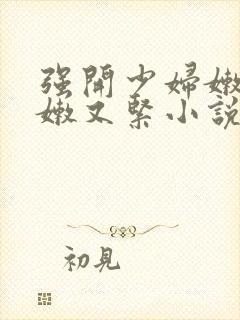 强開少婦嫩
嫩又緊小說
初見